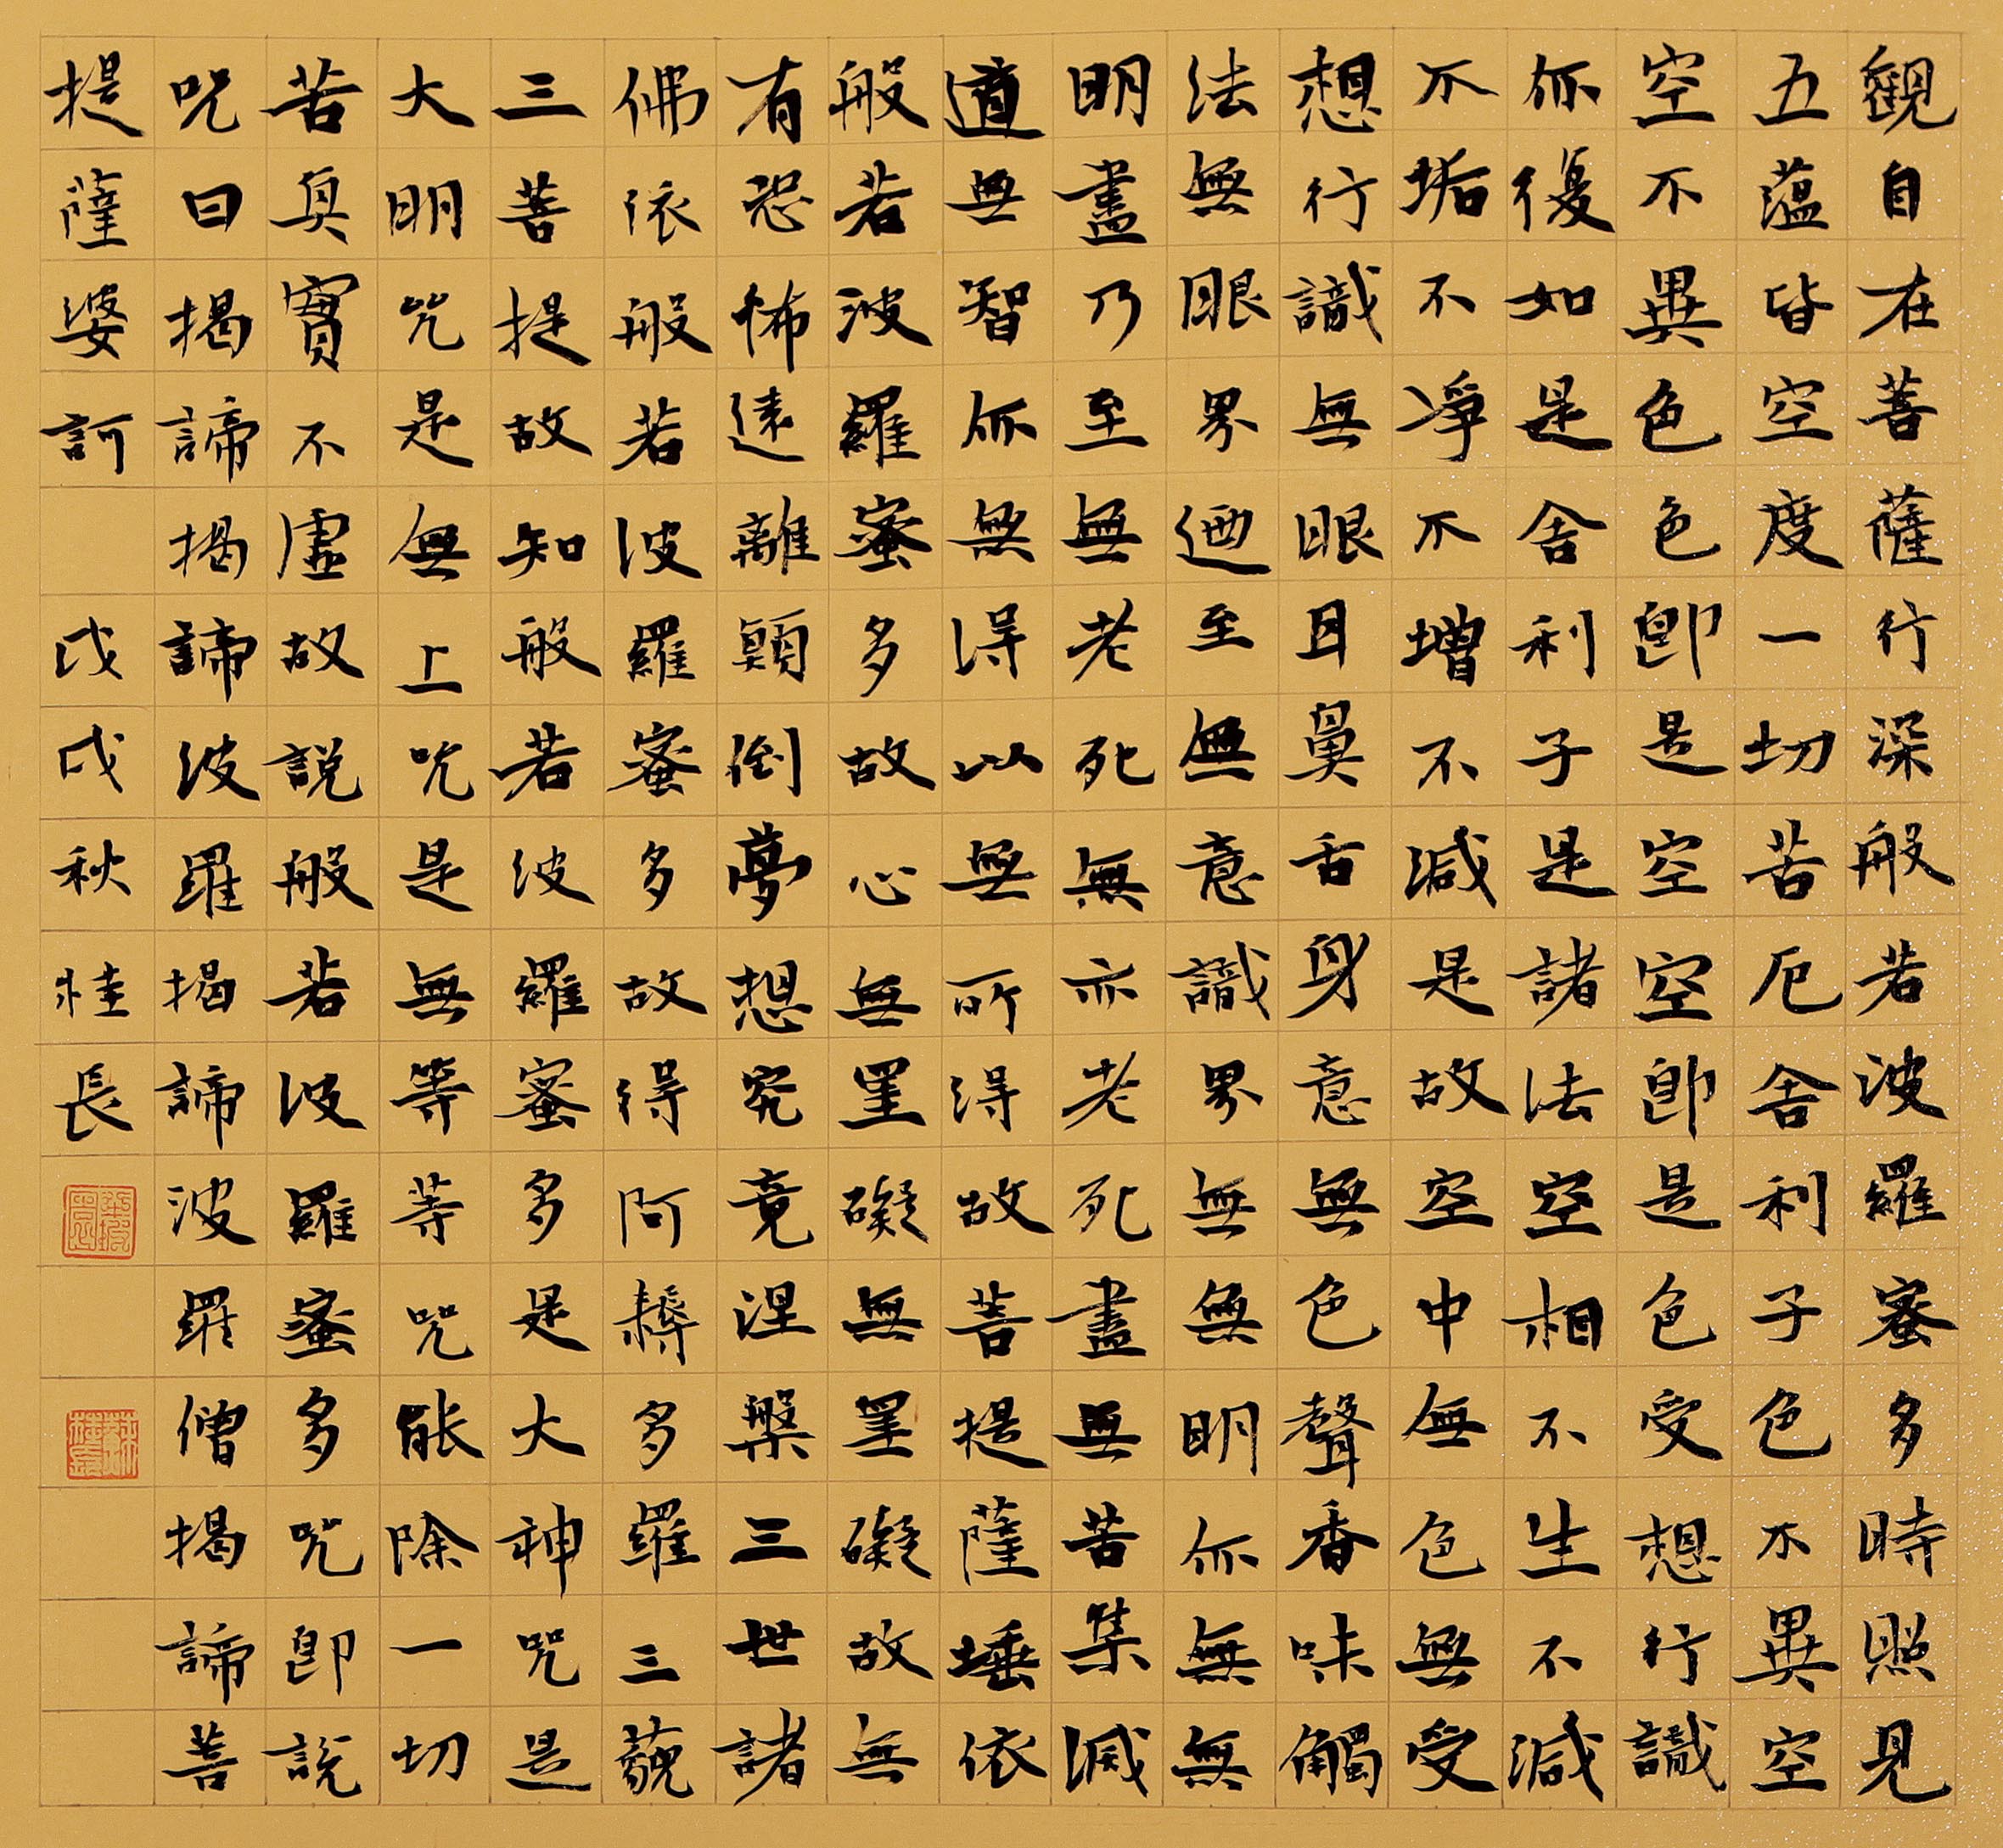 觀自在菩薩行深般若波羅蜜多時照見
五蘊皆空度一切苦厄舍利子色不異空
空不異色色即是空空即是色受想行識
亦復如是舍利子是諸法空相不生不滅
不垢不淨不增不減是故空中無色無受
想行識無眼耳鼻舌身意無色聲香味觸
法無眼界迺至無意識界無無明亦無無
明盡乃至無老死無亦老死盡無苦集滅
道無智亦無得以無所得故菩提薩埵依
般若波羅蜜多故心無罣礙無罣礙故無
有恐怖遠離顛倒夢想究竟涅槃三世諸
佛依般若波羅蜜多故得阿耨多羅三藐
三菩提故知般若波羅蜜多是大神咒是
大明咒是無上咒是無等等咒能除一切
苦真實不虛故說般若波羅蜜多咒即說
咒曰揭諦揭諦波羅揭諦波羅僧揭諦菩
提薩婆訶 戊戌秋桂長